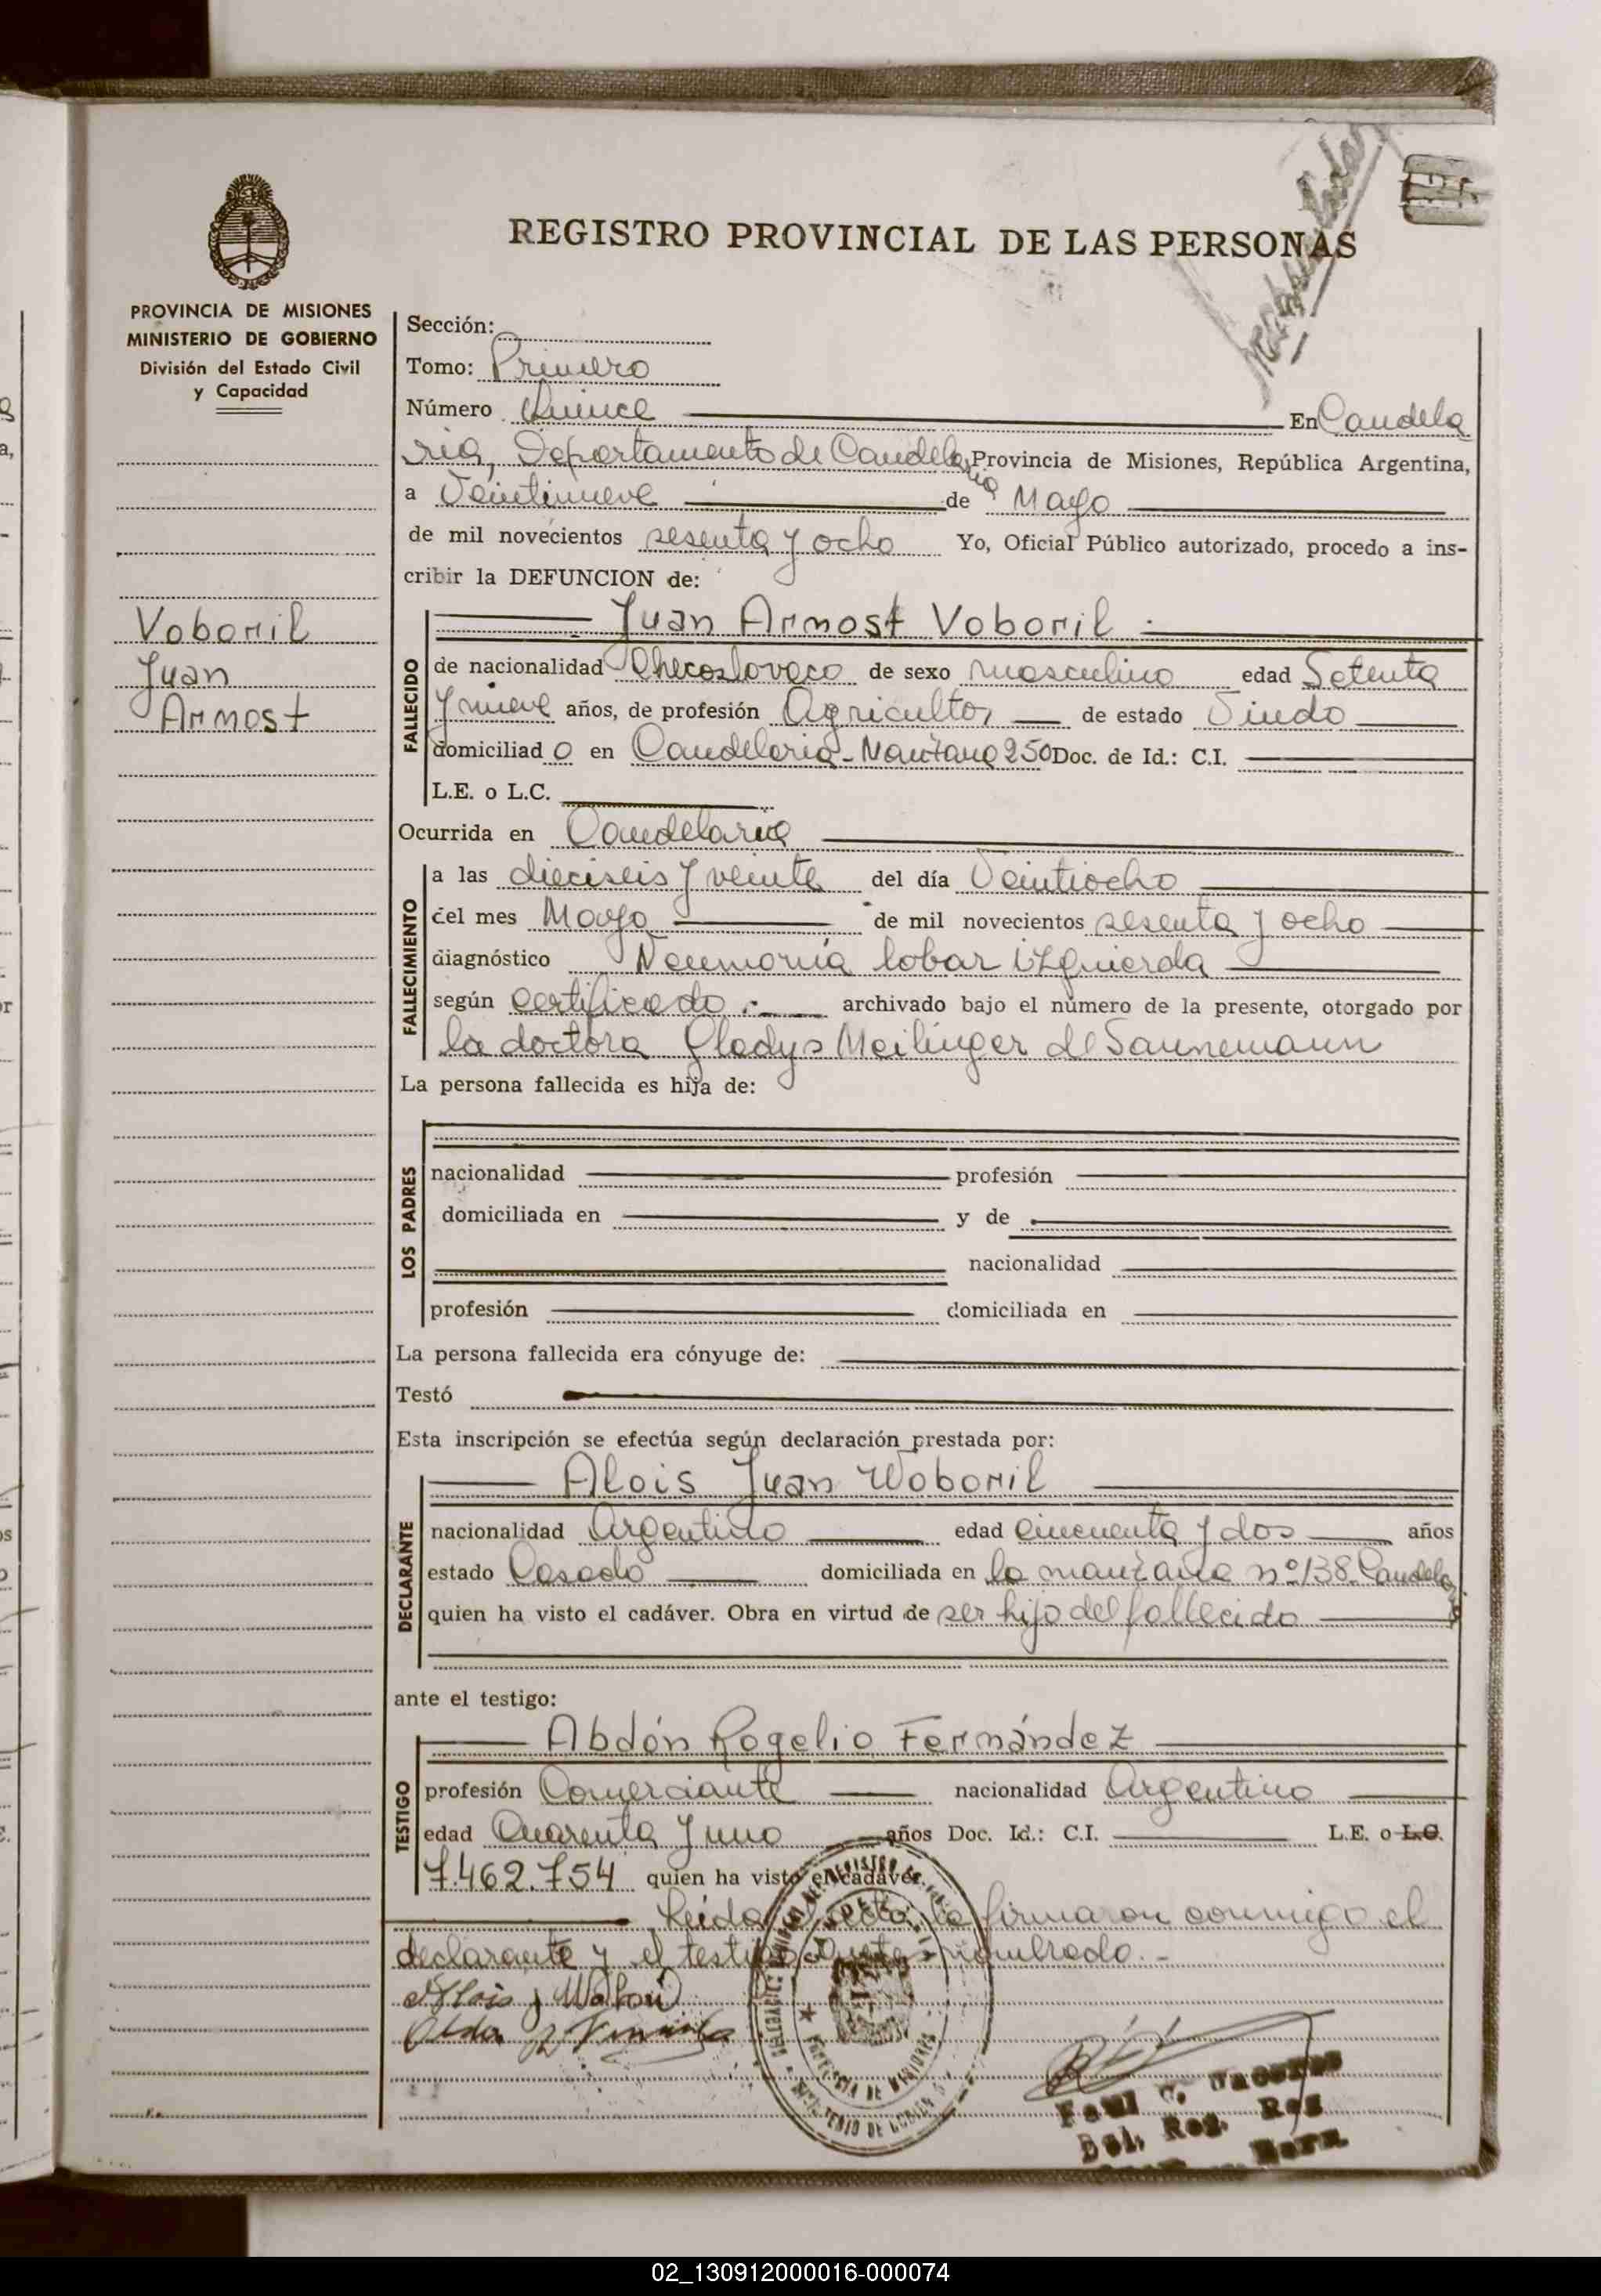 REGISTRO PROVINCIAL DE LAS PERSONAS
PROVINCIA DE MISIONES
MINISTERIO DE GOBIERNO
División del Estado Civil
y Capacidad
Voboril
Juan
Arnost
Sección:
Tomo: Primero
Número Quince En Candela
ria, Departamento de Candelaria Provincia de Misiones, República Argentina,
a Veintinueve de Mayo
de mil novecientos sesenta y ocho Yo, Oficial Público autorizado, procedo a ins-
cribir la DEFUNCION de:
FALLECIDO
Juan Arnost Voboril
de nacionalidad Checoslovaco de sexo masculino edad Setenta
y nueve años, de profesión Agricultor de estado Viudo
domiciliado en Candelaria - Manzana 250 Doc. de Id.: C.I.
L.E. o L.C.
Ocurrida en Candelaria
FALLECIMIENTO
a las dieciseis y veinte del día Veintiocho
del mes Mayo de mil novecientos sesenta y ocho
diagnóstico Neumonía lobar izquierda
según certificado archivado bajo el número de la presente, otorgado por
la doctora Gladys Meilinger de Sannemann
La persona fallecida es hija de:
LOS PADRES
nacionalidad profesión
domiciliada en y de
nacionalidad
profesión domiciliada en
La persona fallecida era cónyuge de:
Testó
Esta inscripción se efectúa según declaración prestada por:
DECLARANTE
Alois Juan Woboril
nacionalidad Argentino edad cincuenta y dos años
estado Casado domiciliada en la manzana nº 138 Candelaria
quien ha visto el cadáver. Obra en virtud de ser hijo del fallecido
ante el testigo:
TESTIGO
Abdón Rogelio Fernández
profesión Comerciante nacionalidad Argentino
edad Cuarenta y uno años Doc. Id.: C.I. L.E. o L.C.
7.462.754 quien ha visto el cadáver.
Leida el acta, la firmaron conmigo el
declarante y el testigo antes nombrado.-
Alois J
PROVINCIA DE MISIONES
MINISTERIO DE
Del. Reg.
02_130912000016-000074